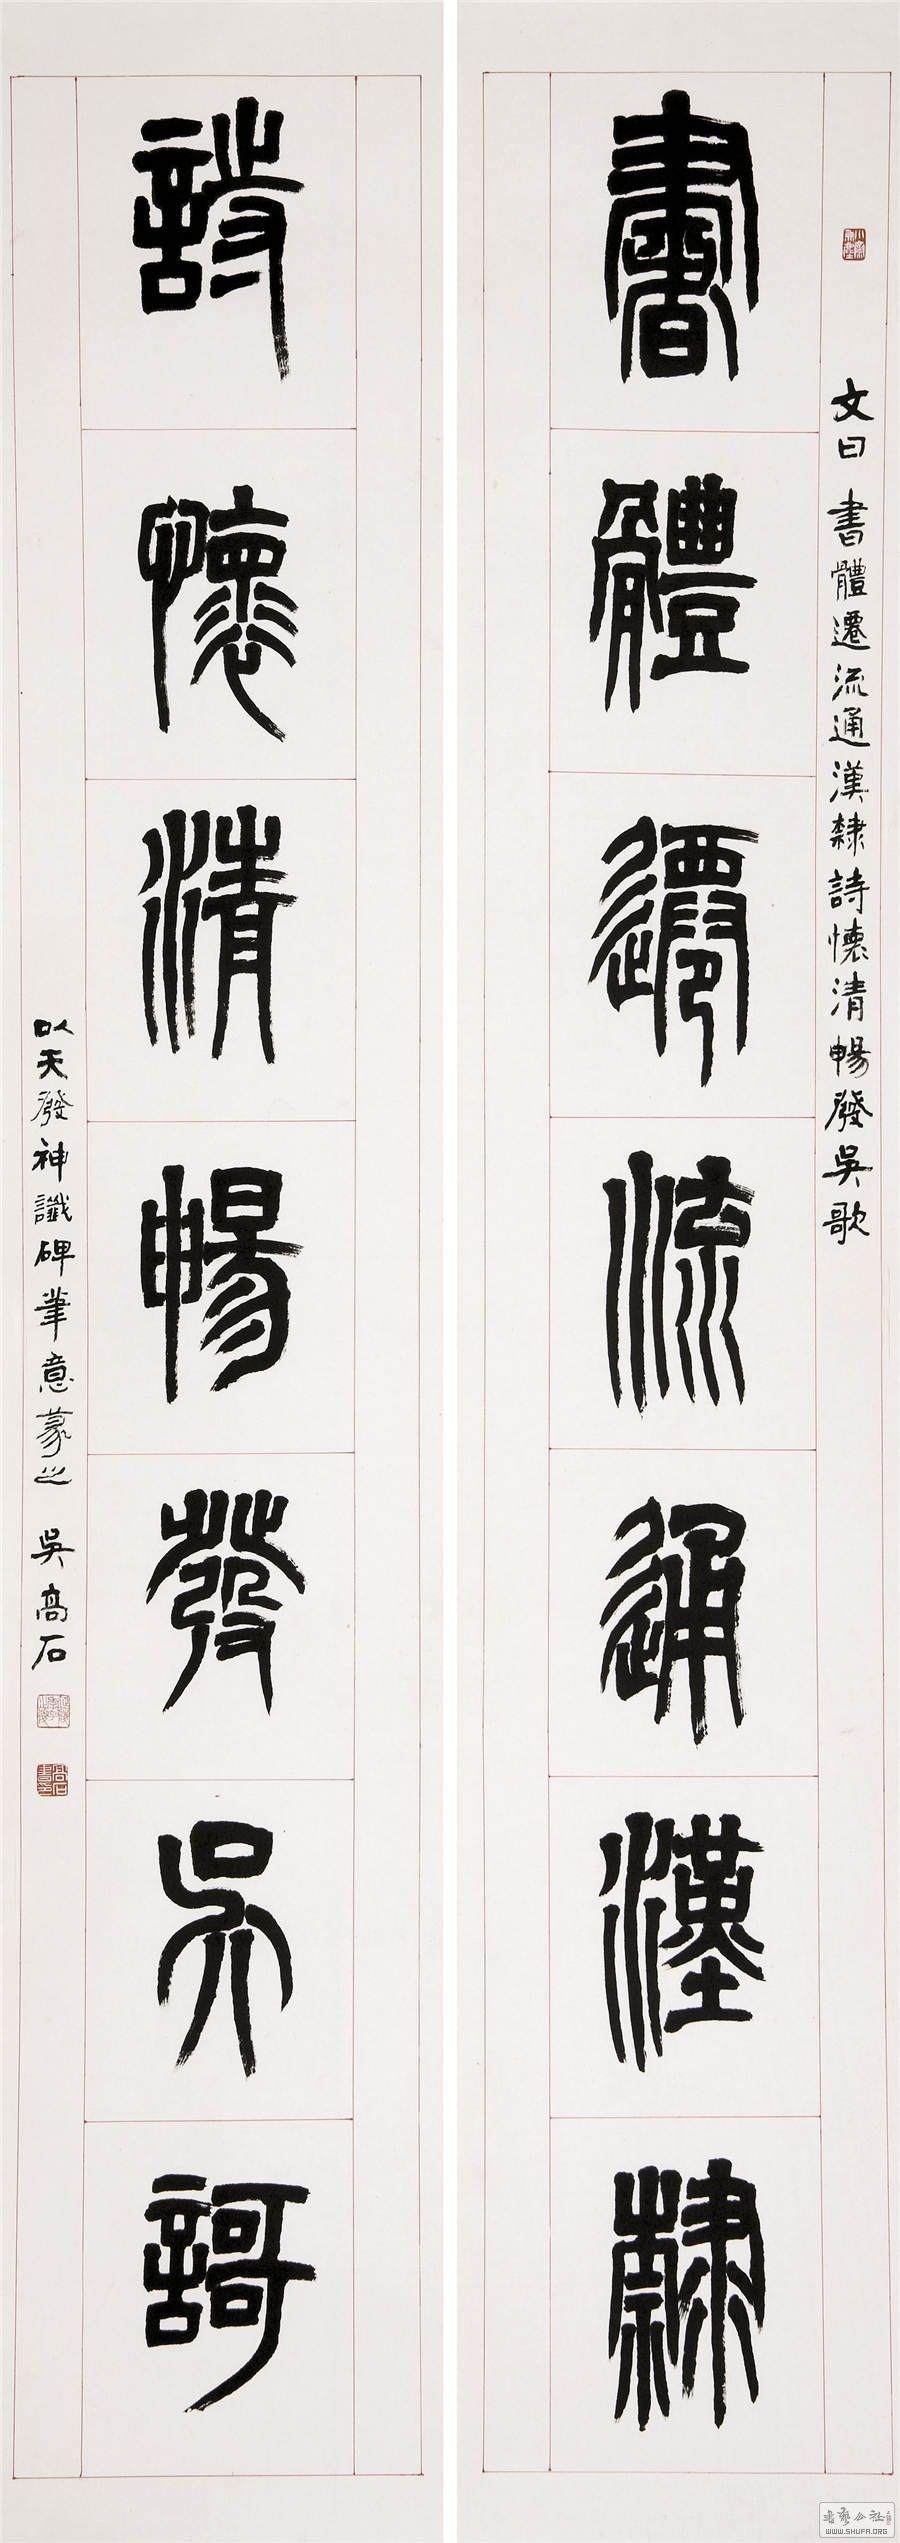 書體遷流通漢隸
文曰 書體遷流通漢隸詩懷清暢發吳歌
詩懷清暢發吳謌
以天發神讖碑筆意篆之 吳高石
WWW.SHUFA.ORG